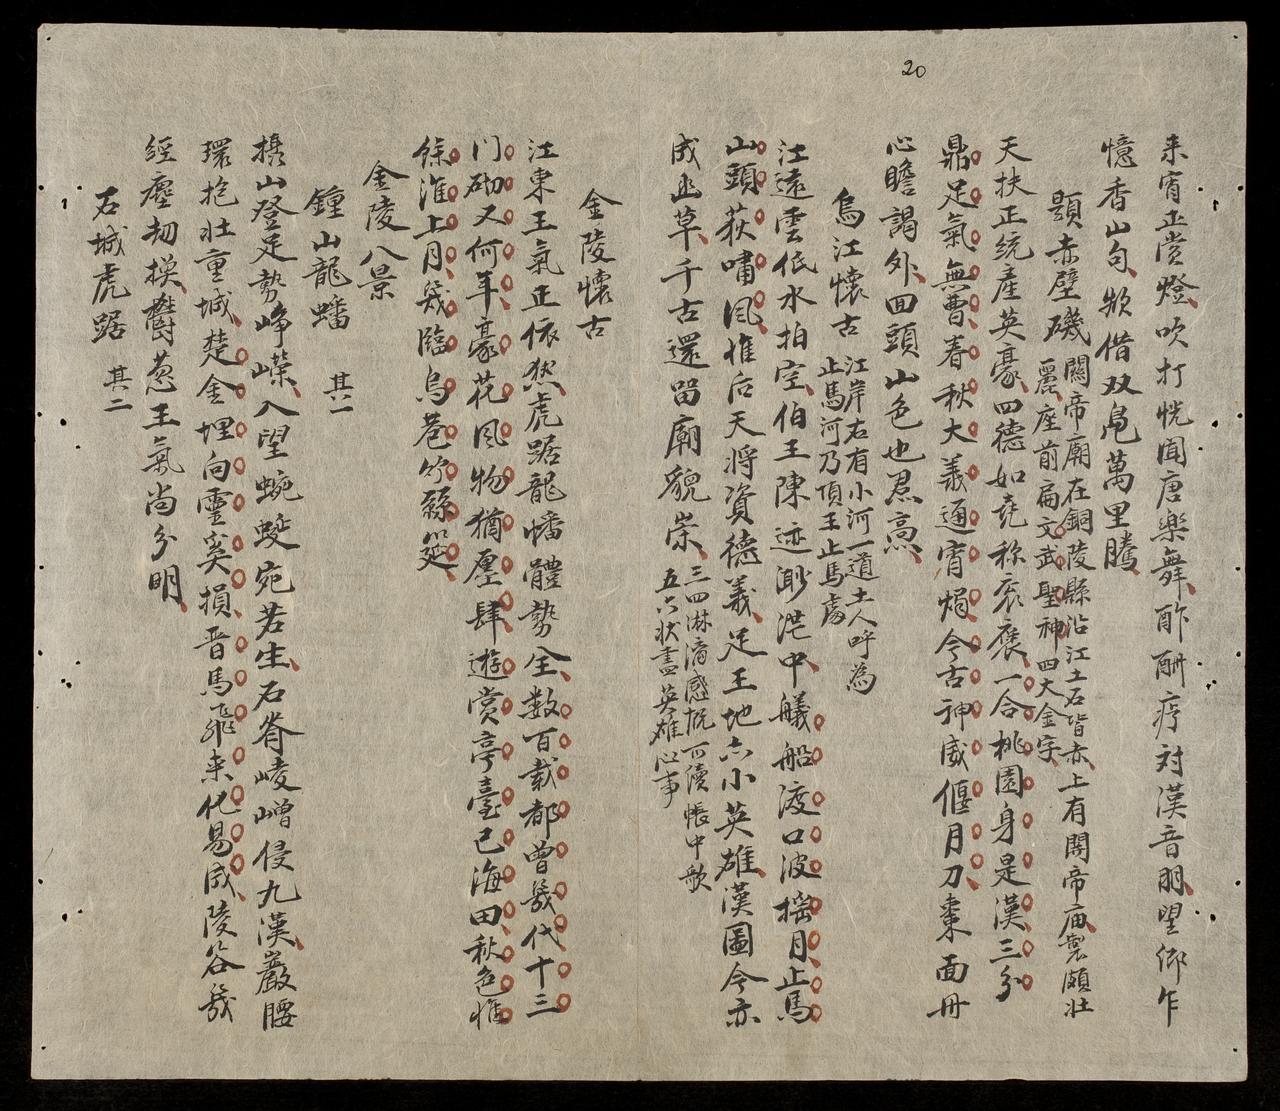 20
来宵正赏燈吹打恍聞唐樂舞酢酬疗対漢音朋望鄉乍
憶香山句欤借双鳬萬里騰
題赤壁磯 關帝廟在銅陵縣沿江土石皆赤上有關帝庙製頗壮
麗座前扁文武聖神四大金字
天扶正統產英豪四德如尭称衮褒一合桃園身是漢三分
鼎足氣無曹春秋大義通宵焆今古神威偃月刀棗面冊
心瞻謁外囬頭山色也焄高
烏江懐古 江岸右有小河一道土人呼為
止馬河乃項王止馬處
江遠雲低水拍空伯王陳迹渺茫中艤船渡口波揺月止馬
山頭荻嘯風惟后天将資德義足王地亦小英雄漢圖今亦
成幽草千古還留廟貌崇 三四淋漓感慨可續帳中歌
五六状盡英雄心事
金陵懐古
江東王氣正依然虎踞龍幡體勢全数百载都曾幾代十三
門砌又何年豪花風物猶廛肆遊賞亭臺已海田秋色惟
餘淮上月幾臨烏巷竹繇筵
金陵八景
鍾山龍蟠 其一
携山登足勢崢嶸入望蜿蜒宛若生石脊崚嶒侵九漢巖腰
環抱壮重城楚金埋向靈奚損晋馬飛来化易成陵谷幾
經塵刼換欝葱王氣尚分明
石城虎踞 其二